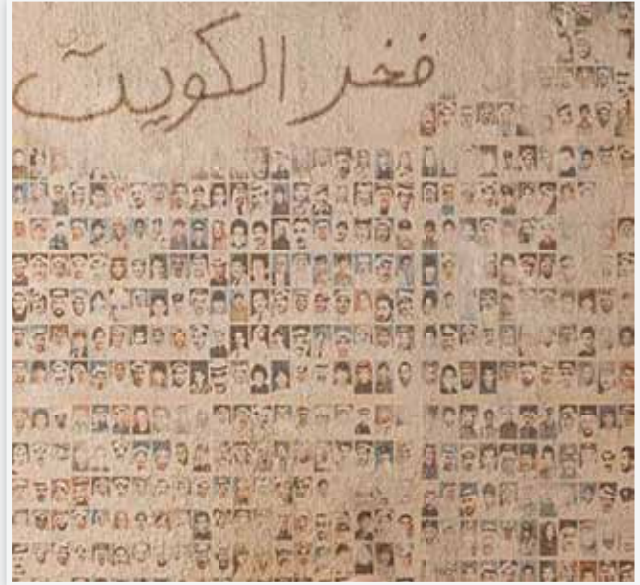 فخر الكويت